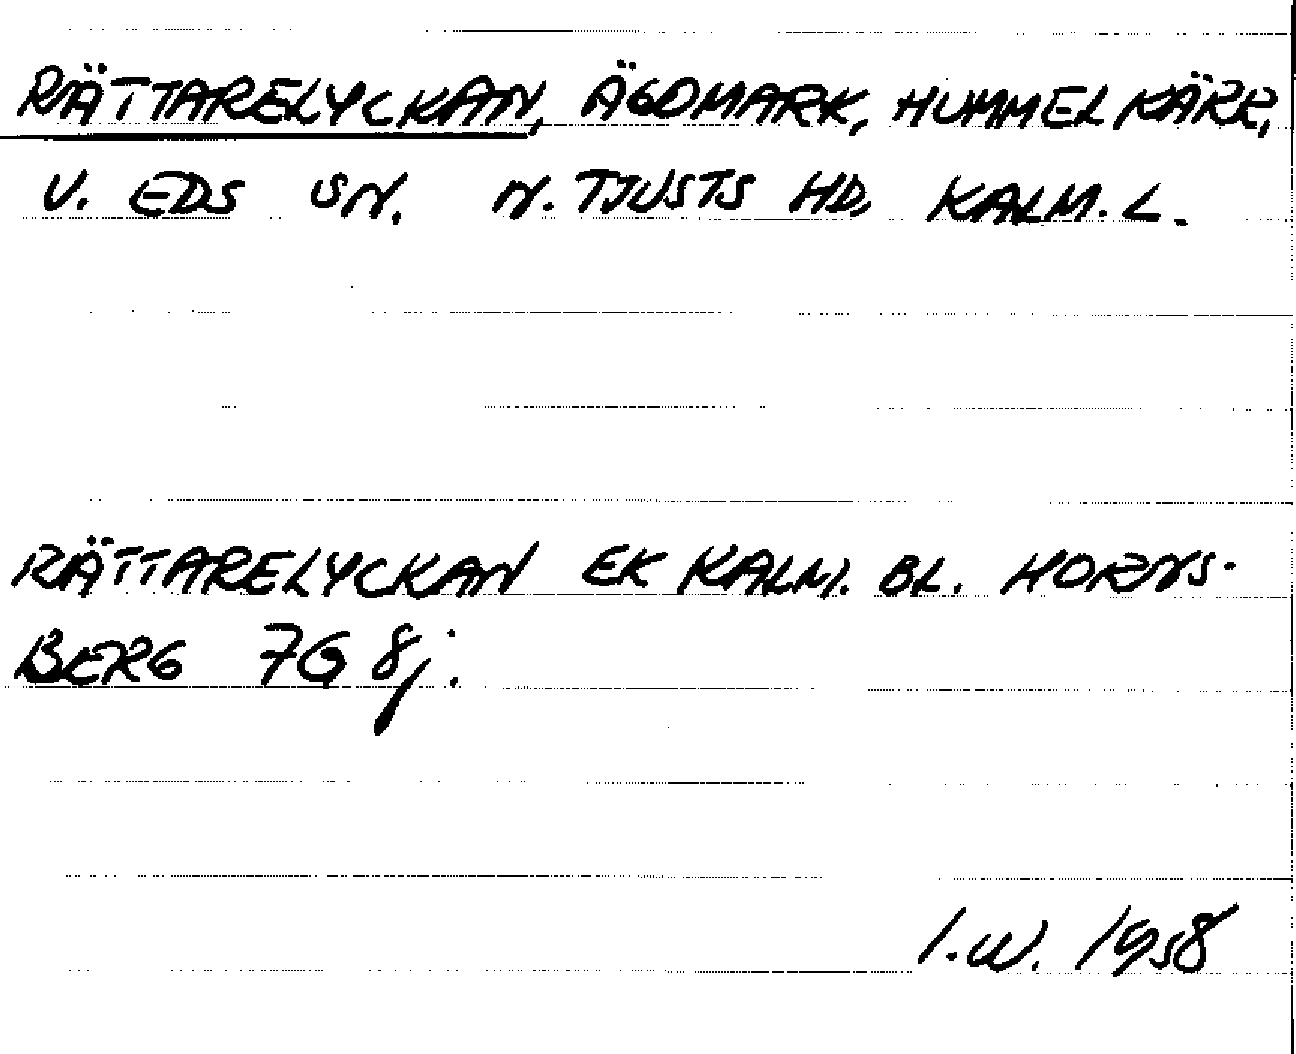 RÄTTARELYCKAN, ÄGOMARK, HUMMELKÄRR,
V. EDS SN. N. TJUSTS HD, KALM. L.
RÄTTARELYCKAN EK KALM. BL. HORNS-
BERG 7G 8j.
I.W. 1958